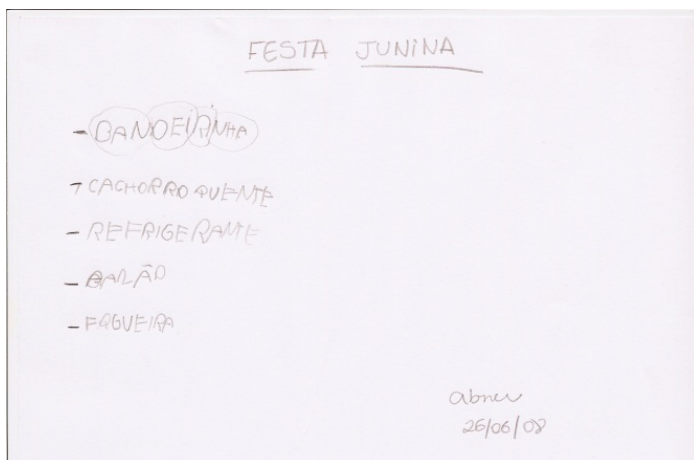 FESTA JUNINA
- BANDEIRINHA
- CACHORRO QUENTE
- REFRIGERANTE
- BALÃO
- FOGUEIRA
abner
26/06/08